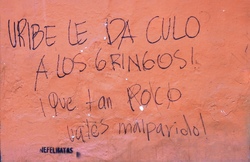 URIBE LE DA CULO
A LOS GRINGOS!
¡QUE tan POCO
vales malparido!
JEFELRATAS